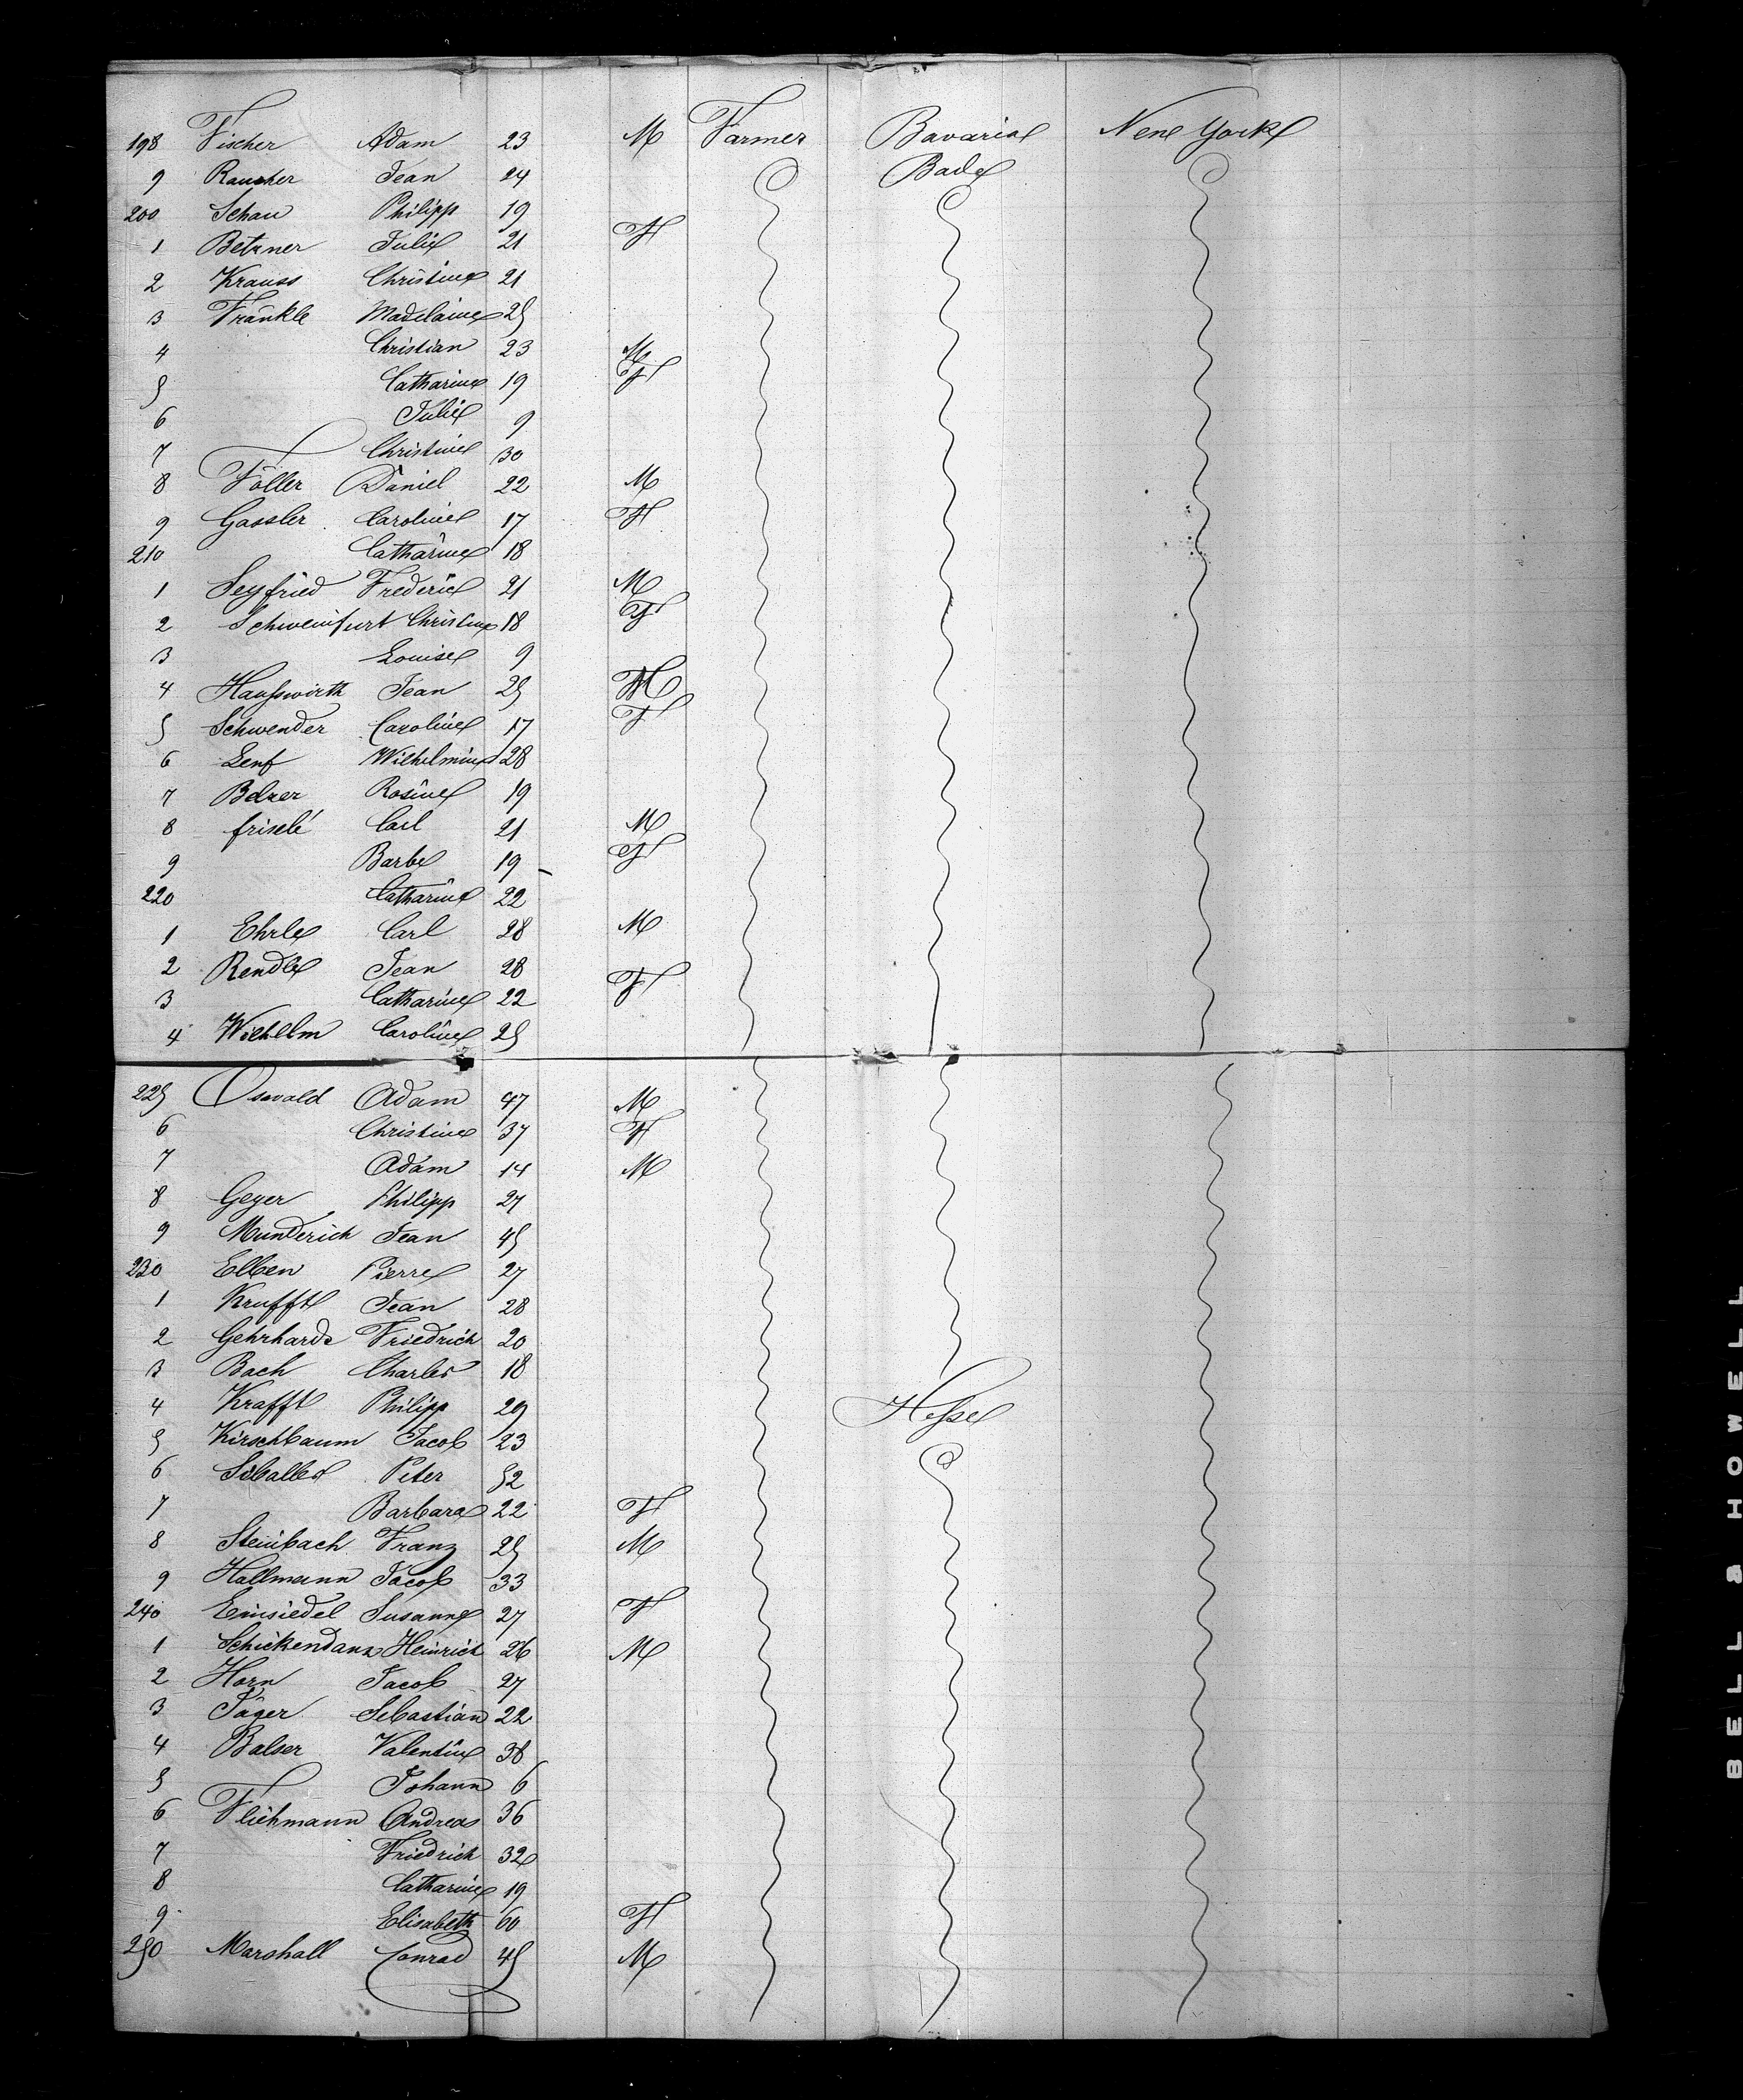 198 Fischer Adam 23 M Farmer Bavaria New York
9 Rausher Jean 24 Bade
200 Schau Philipp 19
1 Betzner Julie 21 F
2 Krauss Christine 21
3 Fränkle Madelaine 25
4 Christian 23 M
5 Catharine 19 F
6 Julie 9
7 Christine 30
8 Föller Daniel 22 M
9 Gassler Caroline 17 F
210 Catharine 18
1 Seyfried Frederic 21 M
2 Schweinfurt Christine 18 F
3 Louise 9
4 Haußwirth Jean 25 M
5 Schwender Caroline 17 F
6 Lenf Wilhelmine 28
7 Belzer Rosine 19
8 Carl 21 M
9 Barbe 19 F
220 Catharine 22
1 Ehrle Carl 28 M
2 Rendle Jean 28
3 Catharine 22 F
4 Wilhelm Caroline 25
225 Oswald Adam 47 M
6 Christine 37 F
7 Adam 14 M
8 Geyer Philipp 27
9 Munderich Jean 45
230 Elben Pierre 27
1 Krufft Jean 28
2 Gehrhards Friedrich 20
3 Bach Charles 18
4 Krafft Philipp 29 Hesse
5 Kirschbaum Jacob 23
6 Peter 52
7 Barbara 22 F
8 Steinbach Franz 25 M
9 Hallmann Jacob 33
240 Einsiedel Susanne 27 F
1 Schickendanz Heinrich 26 M
2 Horn Jacob 27
3 Jäger Sebastian 22
4 Balser Valentin 38
5 Johann 6
6 Flichmann Andreas 36
7 Friedrich 32
8 Catharine 19
9 Elisabeth 60 F
250 Marshall Conrad 45 M
BELL & HOWELL